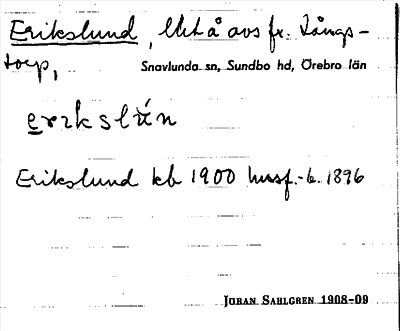 Erikslund, Utå avs fr. Långs-
torp,
Snavlunda sn, Sundbo hd, Örebro län
Erikslund kb 1900 husf.-b. 1896
JOHAN SAHLGREN 1908-09